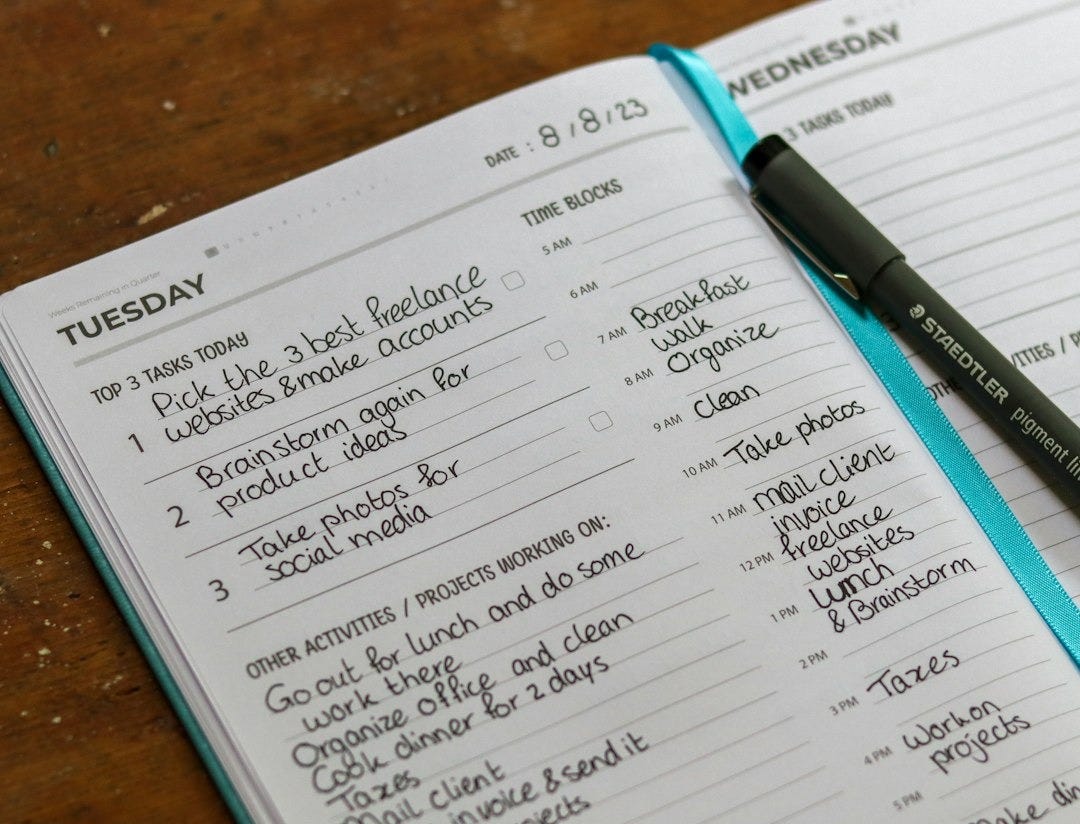 WEDNESDAY
3 TASKS TODAY
DATE : 8 / 8 / 23
Weeks Remaining in Quarter
TUESDAY
TOP 3 TASKS TODAY
1 Pick the 3 best freelance
websites & make accounts
2 Brainstorm again for
product ideas
3 Take photos for
social media
OTHER ACTIVITIES / PROJECTS WORKING ON:
Go out for lunch and do some
work there
Organize office and clean
Cook dinner for 2 days
Taxes
Mail client
invoice & send it
TIME BLOCKS
5 AM
6 AM
7 AM Breakfast
walk
8 AM Organize
9 AM Clean
10 AM Take photos
11 AM mail client
invoice
12 PM freelance
websites
1 PM lunch
& Brainstorm
2 PM
3 PM Taxes
4 PM Work on
projects
5 PM
STAEDTLER
pigment